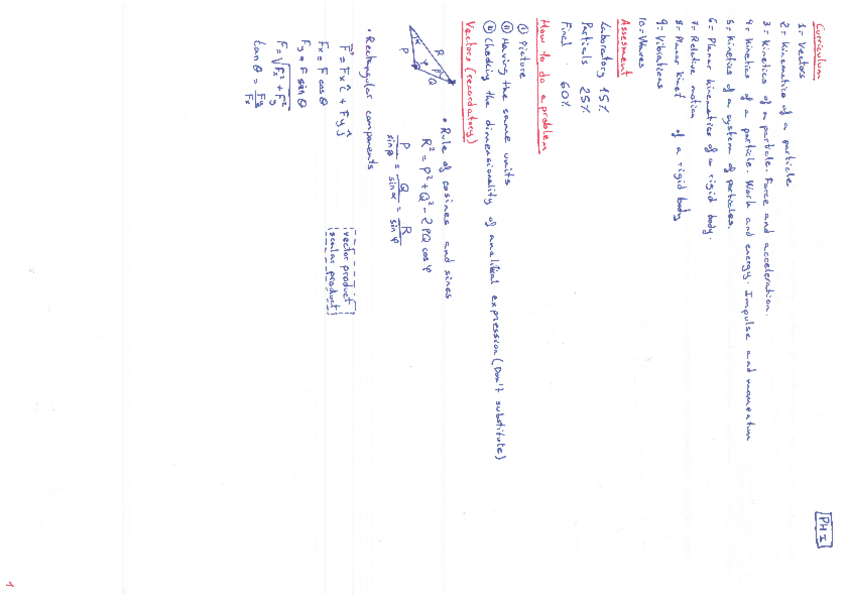 PH I
Curriculum
1- Vectors
2- Kinematics of a particle
3- Kinetics of a particle. Force and acceleration.
4- Kinetics of a particle. Work and energy. Impulse and momentum
5- Kinetics of a system of particles.
6- Planar kinematics of a rigid body.
7- Relative motion
8- Planar kinet of a rigid body
9- Vibrations
10- Waves
Assesment
Laboratory 15%
Partials 25%
Final 60%
How to do a problem
① Picture
② Having the same units
③ Checking the dimensionality of analitical expression (Don't substitute)
Vectors (recordatory)
• Rule of cosines and sines
R² = P² + Q² - 2PQ cos φ
P/sin β = Q/sin α = R/sin φ
R
P
Q
α
φ
β
• Rectangular components
F = Fx î + Fy ĵ
Fx = F cos θ
Fy = F sin θ
F = √(Fx² + Fy²)
tan θ = Fy/Fx
vector product
scalar product
1